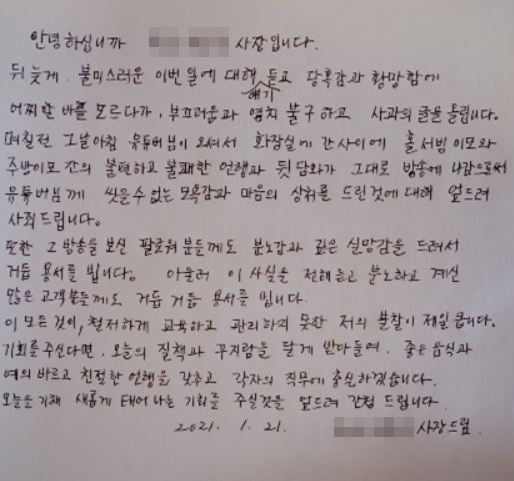 안녕하십니까 사장입니다.
뒤늦게 불미스러운 이번일에 대해 얘기 듣고 당혹감과 황망함에
어찌할바를 모르다가, 부끄러움과 염치 불구하고 사과의 글을 올립니다.
며칠전 그날아침 유튜버님이 오셔서 화장실에 간사이에 홀서빙이모와
주방이모간의 불편하고 불쾌한 언행과 뒷담화가 그대로 방송에 나감으로써
유튜버님께 씻을수 없는 모욕감과 마음의 상처를 드린것에 대해 엎드려
사죄드립니다.
또한 그 방송을 보신 팔로워 분들께도 분노감과 깊은 실망감을 드려서
거듭 용서를 빕니다. 아울러 이 사실을 전해듣고 분노하고 계신
많은 고객분들께도 거듭 거듭 용서를 빕니다.
이 모든것이, 철저하게 교육하고 관리하지 못한 저의 불찰이 제일 큽니다.
기회를 주신다면, 오늘의 질책과 꾸지람을 달게 받아들여, 좋은음식과
예의바르고 친절한 언행을 갖추고 각자의 직무에 충실하겠습니다.
오늘을 기해 새롭게 태어나는 기회를 주실것을 엎드려 간청 드립니다.
2021. 1. 21. 사장드림.